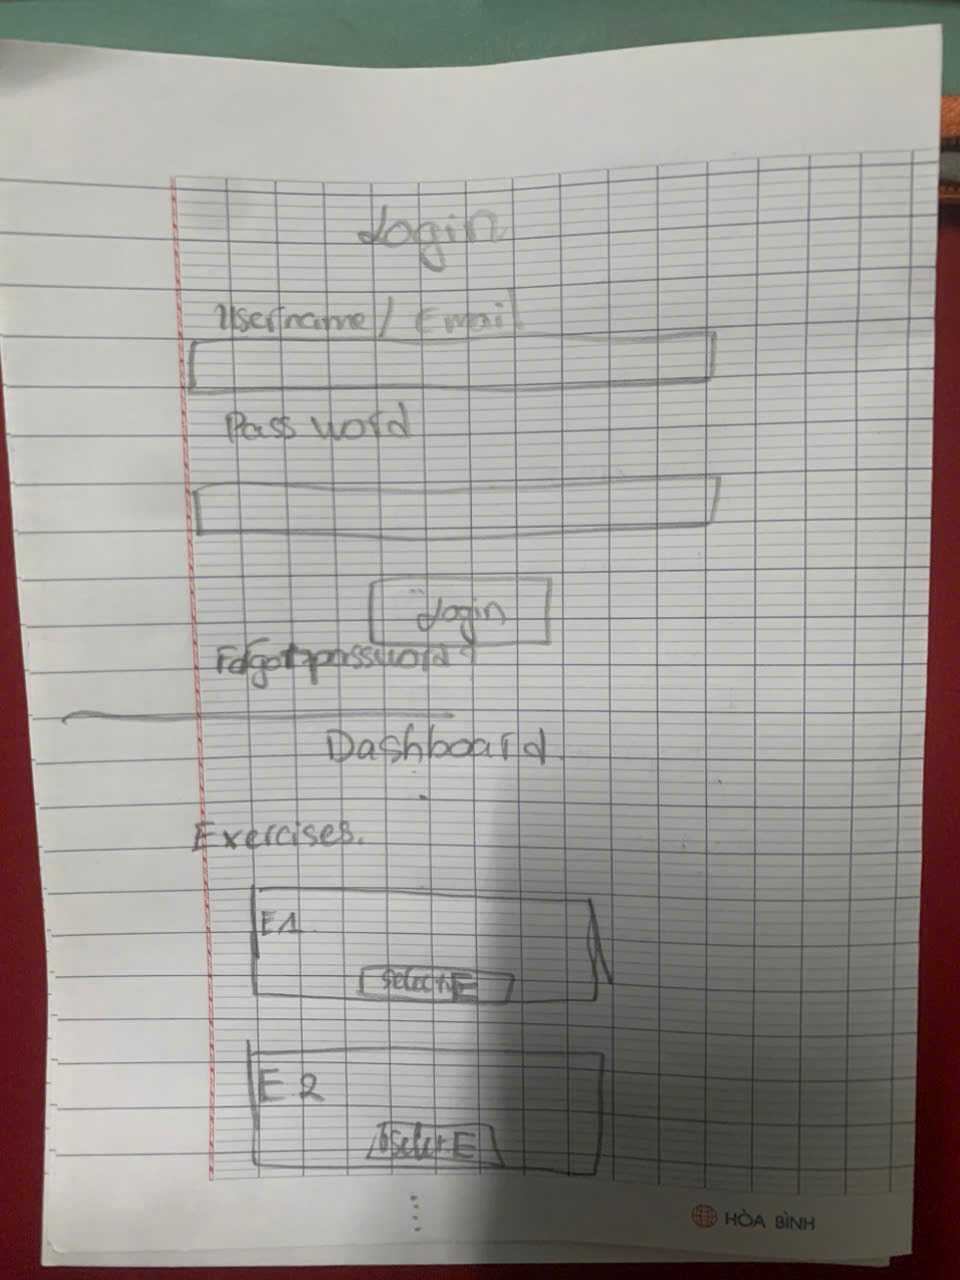 Login
Username / Email
Password
Login
Forgot password?
Dashboard
Exercises.
E1
Select E
E2
Select E
HÒA BÌNH